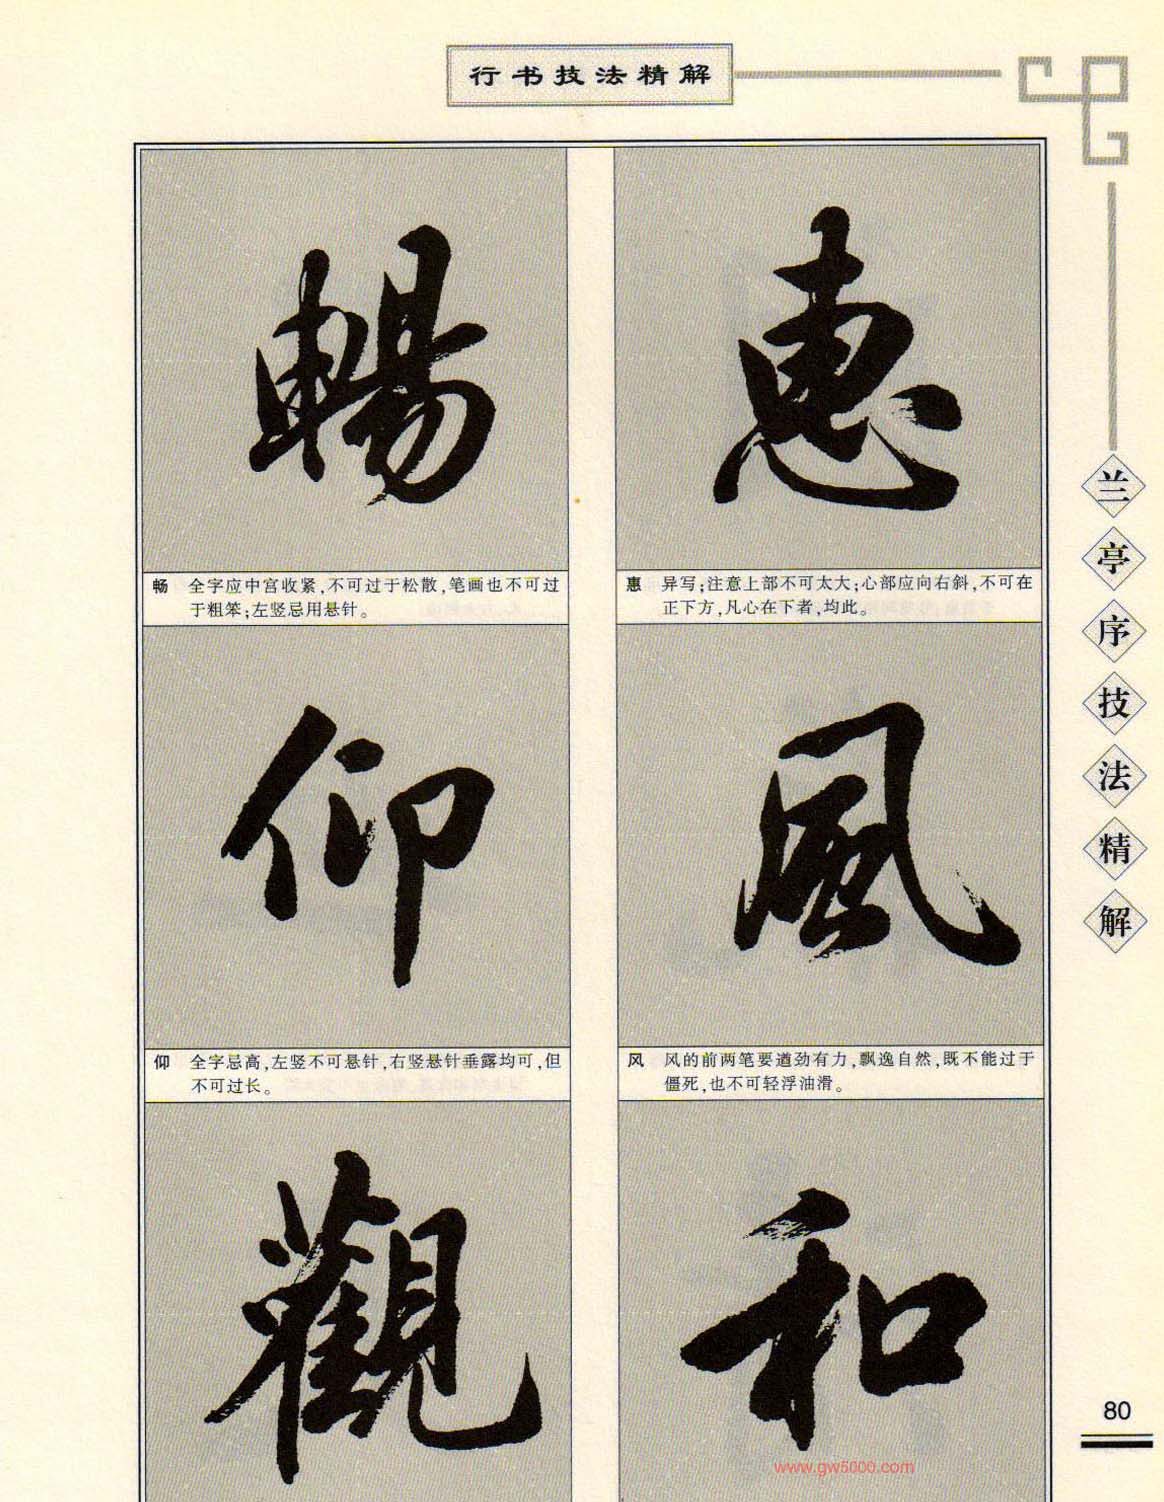 行书技法精解
惠
惠 异写;注意上部不可太大;心部应向右斜,不可在
正下方,凡心在下者,均此。
風
风 风的前两笔要遒劲有力,飘逸自然,既不能过于
僵死,也不可轻浮油滑。
和
暢
畅 全字应中宫收紧,不可过于松散,笔画也不可过
于粗笨;左竖忌用悬针。
仰
仰 全字忌高,左竖不可悬针,右竖悬针垂露均可,但
不可过长。
觀
兰亭序技法精解
80
www.gw5000.com